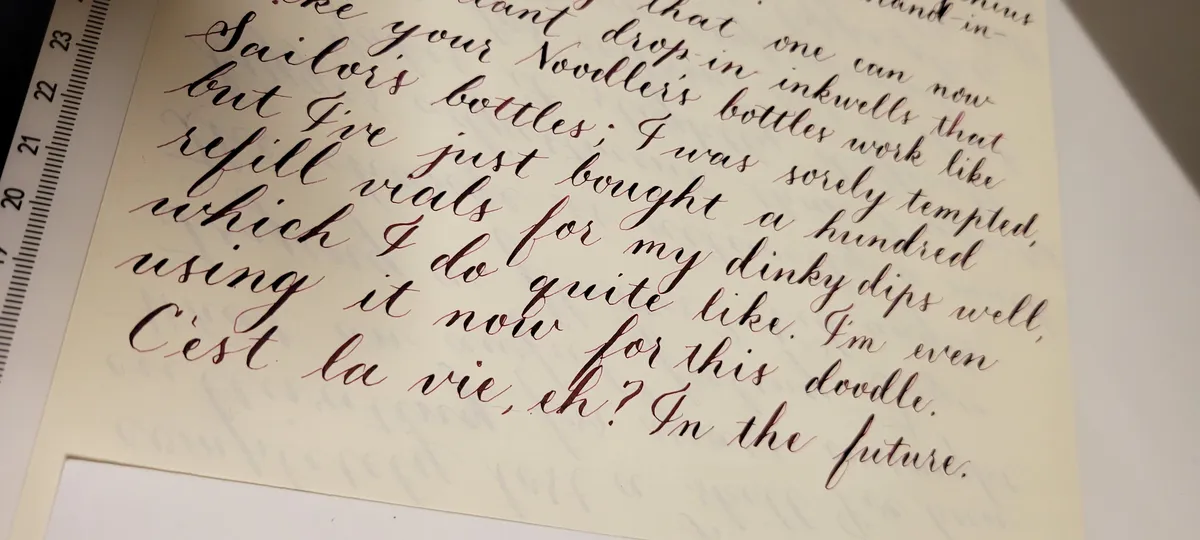 that one can now
drop-in inkwells that
your Noodler's bottles work like
Sailor's bottles; I was sorely tempted,
but I've just bought a hundred
refill vials for my dinky dips well,
which I do quite like. I'm even
using it now for this doodle.
C'est la vie, eh? In the future.
23
22
21
20